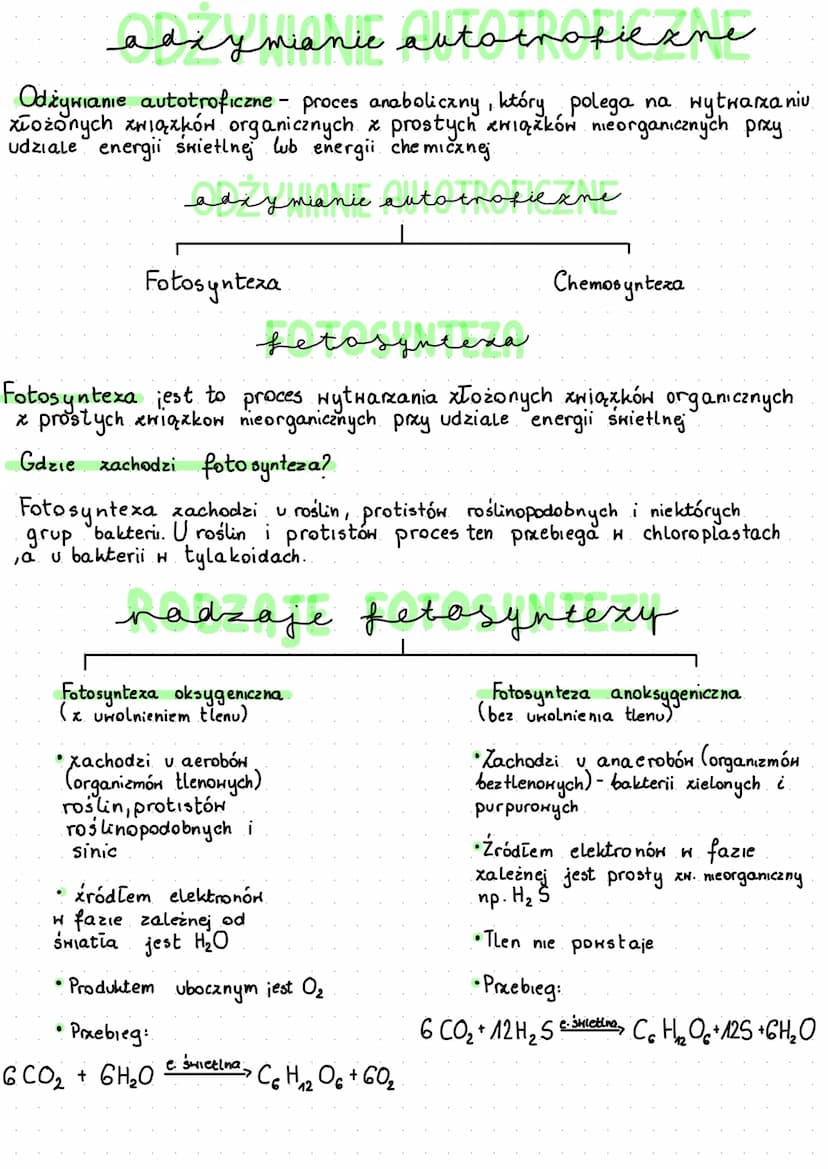 odżywianie autotroficzne
Odżywianie autotroficzne - proces anaboliczny, który polega na wytwarzaniu
złożonych związków organicznych z prostych związków nieorganicznych przy
udziale energii świetlnej lub energii chemicznej
odżywianie autotroficzne
Fotosynteza
Chemosynteza
fotosynteza
Fotosynteza jest to proces wytwarzania złożonych związków organicznych
z prostych związkow nieorganicznych przy udziale energii świetlnej
Gdzie zachodzi fotosynteza?
Fotosynteza zachodzi u roślin, protistów roślinopodobnych i niektórych
grup bakterii. U roślin i protistów proces ten przebiega w chloroplastach
,a u bakterii w tylakoidach.
rodzaje fotosyntezy
Fotosynteza oksygeniczna
(z uwolnieniem tlenu)
• zachodzi u aerobów
(organizmów tlenowych)
roślin, protistów
roślinopodobnych i
sinic
• źródłem elektronów
w fazie zależnej od
światła jest H₂O
• Produktem ubocznym jest O₂
• Przebieg:
6CO₂ + 6H₂O e. świetlna → C₆H₁₂O₆ + 6O₂
Fotosynteza anoksygeniczna
(bez uwolnienia tlenu)
• Zachodzi u anaerobów (organizmów
beztlenowych) - bakterii zielonych i
purpurowych
• Źródłem elektronów w fazie
zależnej jest prosty zw. nieorganiczny
np. H₂S
• Tlen nie powstaje
• Przebieg:
6CO₂ + 12H₂S e. świetlna → C₆H₁₂O₆ + 12S + 6H₂O